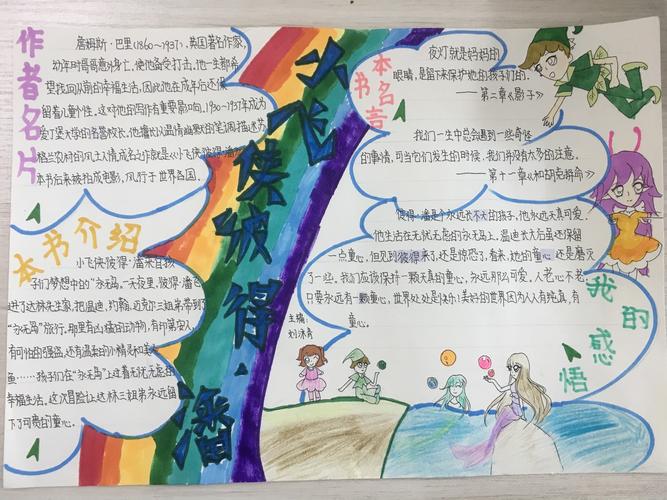 作者名片
詹姆斯·巴里(1860~1937),英国著名作家,
幼年时哥哥意外身亡,使他备受打击,他一生都希
望找回从前的幸福生活,因此他在成年后还保
留着儿童个性。这对他的写作有重要影响。1930-1937年成为
爱丁堡大学的名誉校长,他擅长以温情幽默的笔调描述苏
格兰农村的风土人情,成名之作就是《小飞侠彼得·潘》
本书后来被拍成电影,风行于世界各国。
本书介绍
小飞侠彼得·潘来自孩
子们梦想中的“永无岛”。一天夜里,彼得·潘飞
进了达林先生家,把温迪、约翰、迈克尔三姐弟带到了
“永无岛”旅行。那里有凶猛的动物,有印第安人,
有可怕的强盗,还有温柔的小精灵和美人
鱼……孩子们在“永无岛”上过着无忧无虑的
幸福生活。这次冒险让达林三姐弟永远留
下了可贵的童心。
小飞侠彼得·潘
本书名言
夜灯就是妈妈的
眼睛,是留下来保护她的孩子们的。
——第二章《影子》
我们一生中总会遇到一些奇怪
的事情,可当它们发生的时候,我们并没有太多的注意。
——第十一章《和胡克拼命》
彼得·潘是个永远长不大的孩子,他永远天真可爱!
他生活在无忧无虑的永无岛上。温迪长大后虽还保留
一点童心,但见到彼得来了,还是惊恐了,看来,她的童心还是磨灭
了一些。我们应该保持一颗天真的童心,永远那么可爱。人老心不老,
只要永远有一颗童心,世界处处是快乐!美好的世界因为人有纯真,有
童心。
我的感悟
主编:
刘沐青